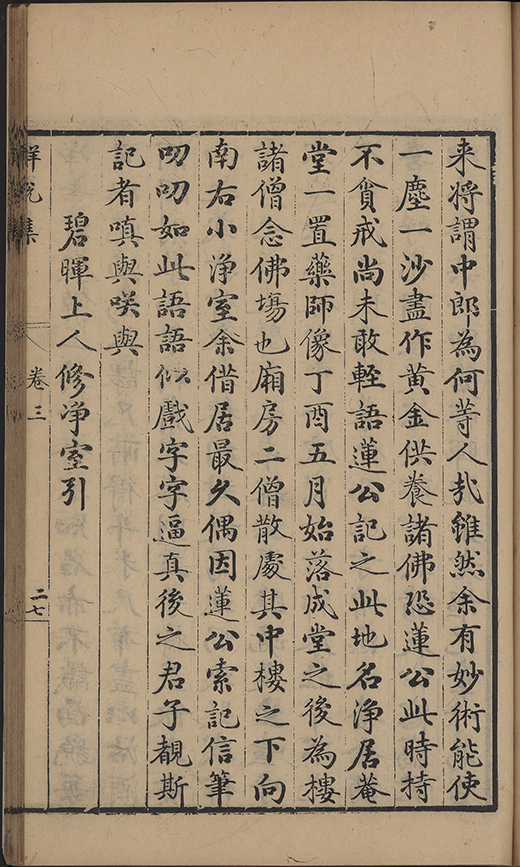 來將謂中郎為何等人哉雖然余有妙術能使
一塵一沙盡作黃金供養諸佛恐蓮公此時持
不貪戒尚未敢輕語蓮公記之此地名淨居菴
堂一置藥師像丁酉五月始落成堂之後為樓
諸僧念佛塲也廂房二僧散處其中樓之下向
南右小淨室余借居最久偶因蓮公索記信筆
叨叨如此語語似戲字字逼真後之君子覩斯
記者嗔與咲與
碧暉上人修淨室引
卷三
二七